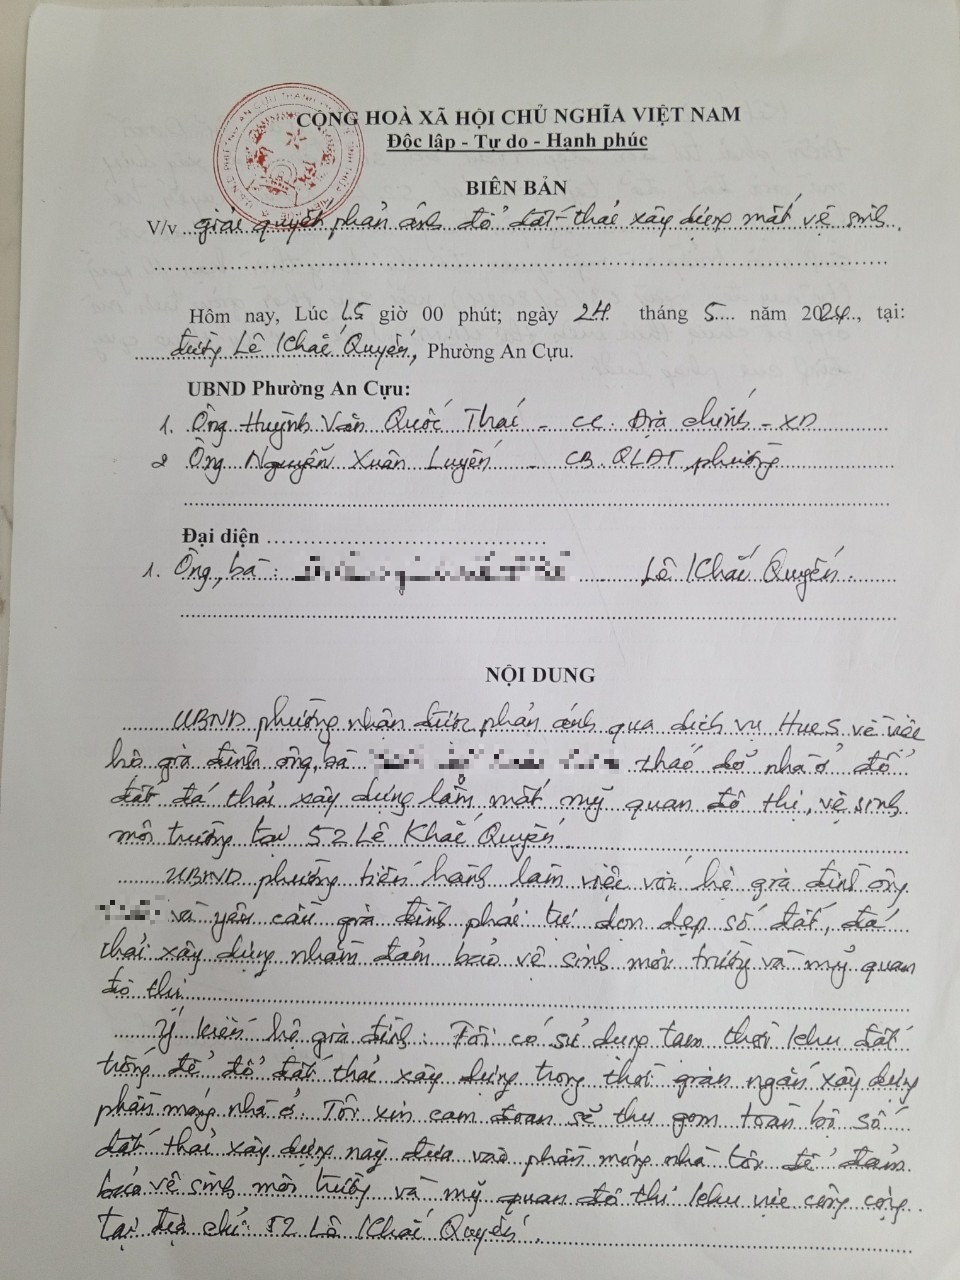 CỘNG HOÀ XÃ HỘI CHỦ NGHĨA VIỆT NAM
Độc lập - Tự do - Hạnh phúc
BIÊN BẢN
V/v giải quyết phản ánh đổ đất thải xây dựng mất vệ sinh
Hôm nay, Lúc 15 giờ 00 phút; ngày 24 tháng 5 năm 2024, tại:
đường Lê Khắc Quyến, Phường An Cựu.
UBND Phường An Cựu:
1. Ông Huỳnh Văn Quốc Thái - CC. Địa chính - XD
2 Ông Nguyễn Xuân Luyến - CB. QLĐT phường
Đại diện
1. Ông, bà: Lê Khắc Quyến.
NỘI DUNG
UBND phường nhận được phản ánh qua dịch vụ HueS về việc
hộ gia đình ông, bà tháo dỡ nhà ở đổ
đất đá thải xây dựng làm mất mỹ quan đô thị, vệ sinh
môi trường tại 52 Lê Khắc Quyến.
UBND phường tiến hành làm việc với hộ gia đình ông
và yêu cầu gia đình phải tự dọn dẹp số đất, đá
thải xây dựng nhằm đảm bảo vệ sinh môi trường và mỹ quan
đô thị
Ý kiến hộ gia đình: Tôi có sử dụng tạm thời khu đất
trống để đổ đất thải xây dựng trong thời gian ngắn xây dựng
phần móng nhà ở. Tôi xin cam đoan sẽ thu gom toàn bộ số
đất thải xây dựng này đưa vào phần móng nhà tôi để đảm
bảo vệ sinh môi trường và mỹ quan đô thị khu vực công cộng
tại địa chỉ: 52 Lê Khắc Quyến.